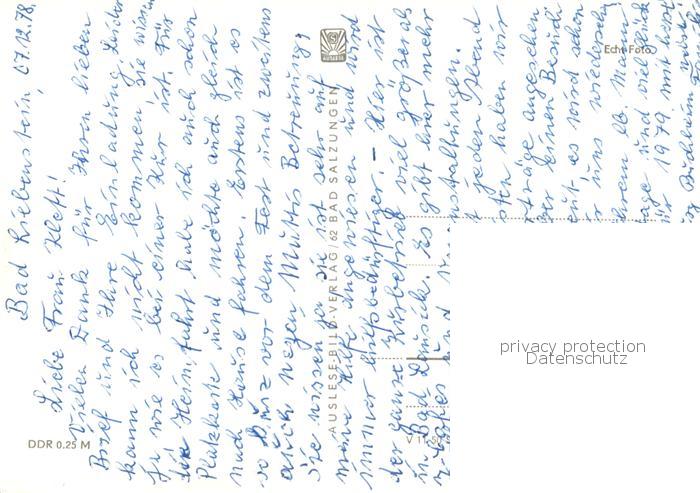 Bad Liebenstein, 07.12.78,
Liebe Frau Kleff!
Vielen Dank für Ihren lieben
Brief und Ihre Einladung. Leider
kann ich nicht kommen, Sie wissen
ja wie es bei einer Kur ist. Für
die Heimfahrt habe ich auch schon
Platzkarte und möchte auch gleich
nach Hause fahren. Erstens ist es
so kurz vor dem Fest und zweitens
auch wegen Muttis Betreuung,
Sie wissen ja sie ist sehr auf
meine Hilfe angewiesen und wird
immer hilfsbedürftiger. - Hier ist
der ganze Kurbetrieb viel größer als
in Bad es gibt hier mehr
staltungen.
jeden Abend
haben wir
träge angesehen
einen Besuch
es wird schon
uns wiedersehen
Ihrem lb. Mann
age und viel Glück
1979 mit
AUSLESE
Echt Foto
AUSLESE-BILD-VERLAG / 62 BAD SALZUNGEN
DDR 0.25 M
V 11-50
privacy protection
Datenschutz